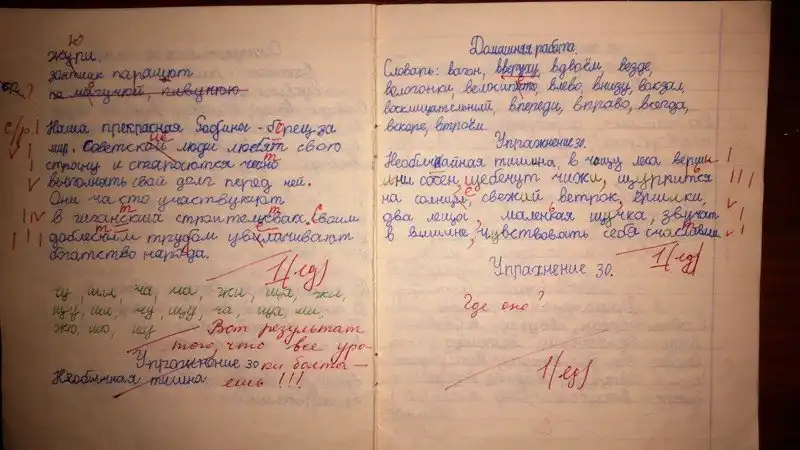 жури,
зонтшик паращют
Наша прекрасная Родбина - борец за
мир. Советской люди любят свою
строну и стараются чесно
выполнять свой долг перед ней.
Они часто участвуют
в гиганских строительсвах. Своим
доблесным трудом увилачивают
богатство народа.
1(ед)
чу, щу, ча, ща, жи, ща, жи,
щу, ши, чу, щу, ча, ща, ши,
жю, шо, щу
Вот результат
того, что все уро-
ки болта-
ешь!!!
Упражнение 30
Необычная тишина
Домашняя работа.
Словарь: вагон, вверху, вдвоём, везде,
велосипед, влево, внизу, вокзал,
восклицательний, впереди, вправо, всегда,
вскоре, втраём.
Упражнение 30.
Необычайная тишина, в чащу леса
сосен, щебечут чижи, щурится
на солнце, свежий ветрок,
два лещы, маленкая щучка, звучат
в тишине, чувствовать себя
1(ед)
Упрахнение 30.
Где оно?
1(ед)